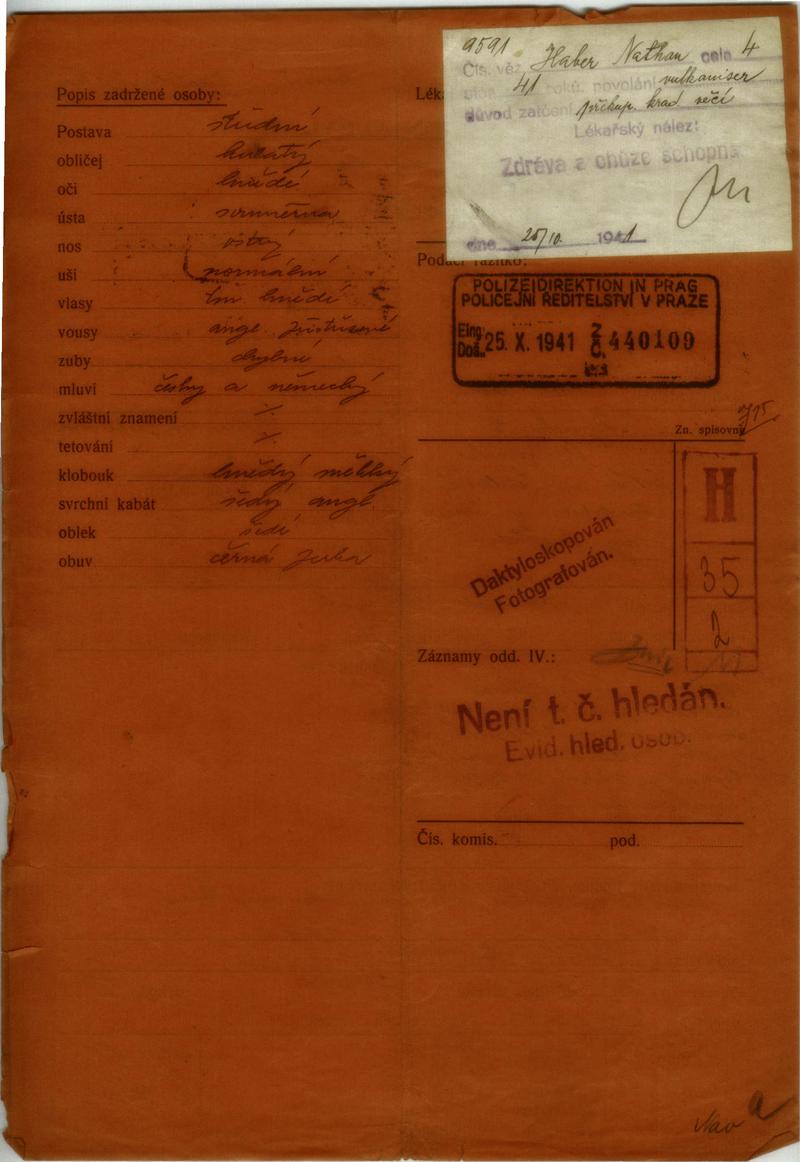 Popis zadržené osoby:
Postava střední
obličej kulatý
oči hnědé
ústa souměrna
nos ostrý
uši normální
vlasy tm. hnědé
vousy angl.
zuby chybné
mluví česky a německy
zvláštní znamení ./.
tetování ./.
klobouk hnědý měkký
svrchní kabát šedý angl.
oblek šedé
obuv černá
9591 Haber Nathan cela 4
Čís. věz
41 roků, povolání vulkaniser
důvod zatčení přechup. krad věcí
Lékařský nález:
Zdráva a chůze schopna
dne 25/10. 1941
Léka
Podací razítko:
POLIZEIDIREKTION IN PRAG
POLICEJNÍ ŘEDITELSTVÍ V PRAZE
Eing.
Doš. 25. X. 1941 Z. Č. 440109
Zn. spisovny
H
35
2
Daktyloskopován
Fotografován.
Záznamy odd. IV.:
Není t. č. hledán.
Evid. hled. osob.
Čís. komis. pod.